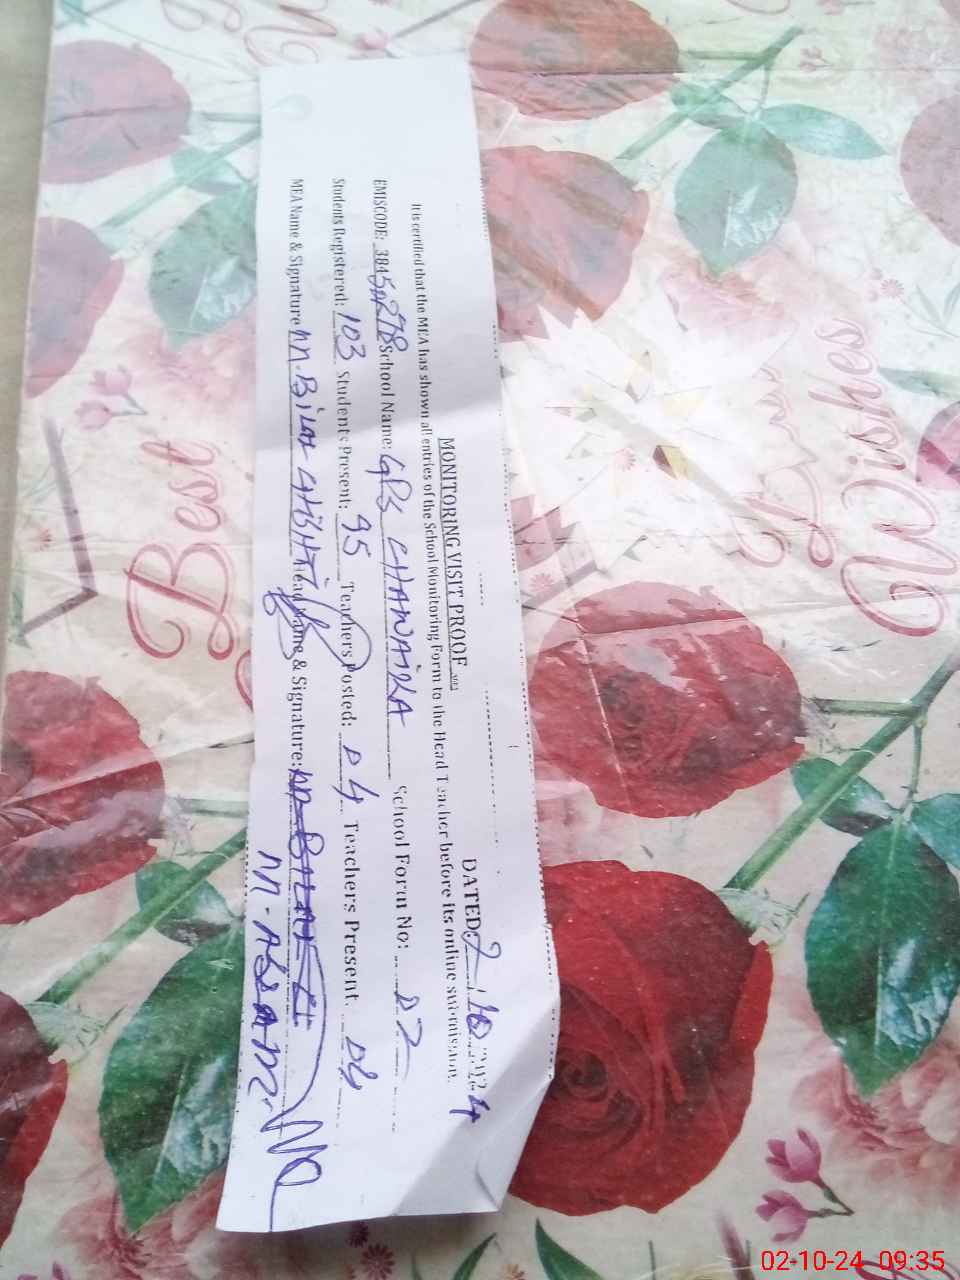 MONITORING VISIT PROOF
DATED 2.10.2024
It is certified that the MEA has shown all entries of the School Monitoring Form to the Head Teacher before its online submission.
EMISCODE: School Name: GPS CHANWAIKA School Form No: 07
Students Registered: 103 Students Present: 95 Teachers Posted: 04 Teachers Present: 04
MEA Name & Signature Head Name & Signature:
Best
Wishes
02-10-24 09:35